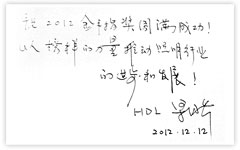 祝2012金手指奖圆满成功!
以榜样的力量推动照明行业
的进步和发展!
HDL
2012.12.12